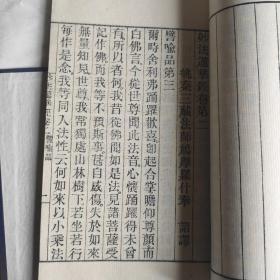 妙法蓮華經卷第二
姚秦三藏法師鳩摩羅什奉 詔譯
譬喻品第三
爾時舍利弗踊躍歡喜即起合掌瞻仰尊顏而
白佛言今從世尊聞此法音心懷踊躍得未曾
有所以者何我昔從佛聞如是法見諸菩薩受
記作佛而我等不預斯事甚自感傷失於如來
無量知見世尊我常獨處山林樹下若坐若行
每作是念我等同入法性云何如來以小乘法
妙法蓮華經卷二 譬喻品 一